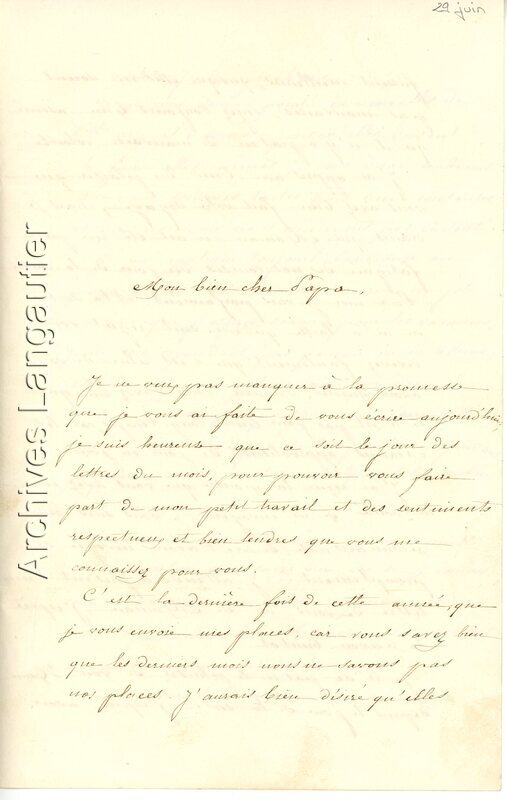 29 juin
Mon bien cher Papa,
Je ne veux pas manquer à la promesse
que je vous ai faite de vous écrire aujourd'hui,
je suis heureuse que ce soit le jour des
lettres du mois, pour pouvoir vous faire
part de mon petit travail et des sentiments
respectueux et bien tendres que vous me
connaissez pour vous.
C'est la dernière fois de cette année, que
je vous envoie mes places, car vous savez bien
que les derniers mois nous ne savons pas
nos places. J'aurais bien désiré qu'elles
Archives Langautier